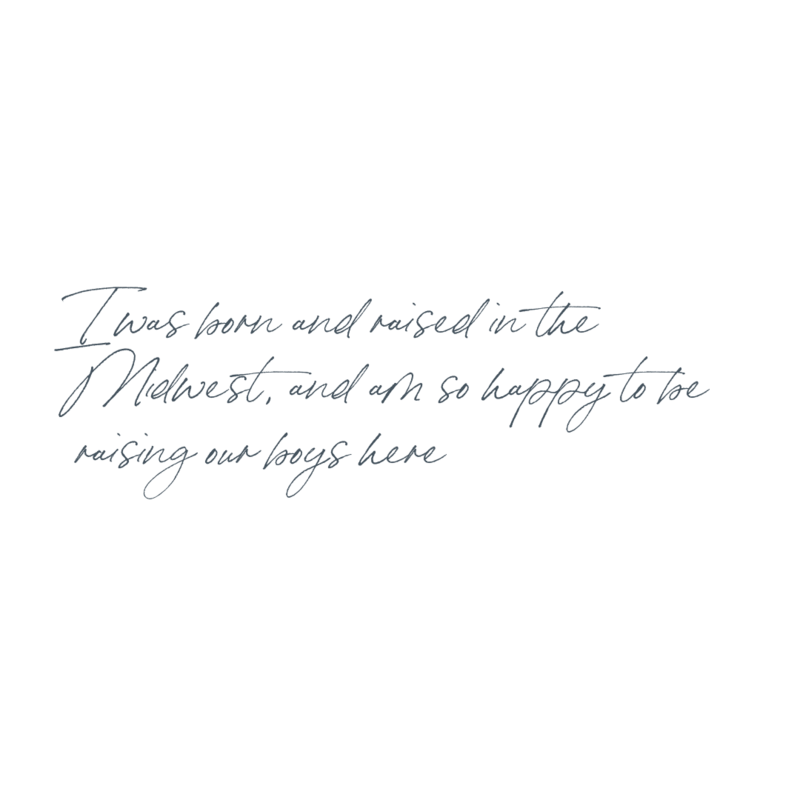 I was born and raised in the
Midwest, and am so happy to be
raising our boys here